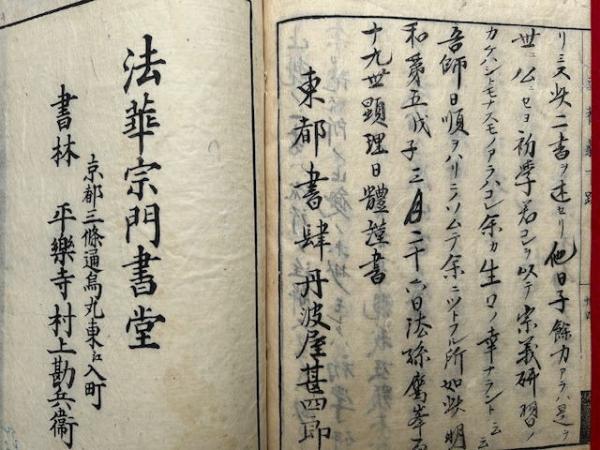 リミ又此二書ヲ述セリ他日子餘力アラハ是ヲ
世ニ公ニセヨ初學若コレヲ以テ宗義研習ノ
カケハシトモナスモノアラハコレ余カ生ロノ幸ナラント云云
吾師日順ヲハリニソムテ余ニツトフル所如此明
和第五戊子三月二十六日法孫鷹峯
十九世顕理日體謹書
東都書肆丹波屋甚四郎
法華宗門書堂
京都三條通烏丸東江入町
書林 平樂寺村上勘兵衞